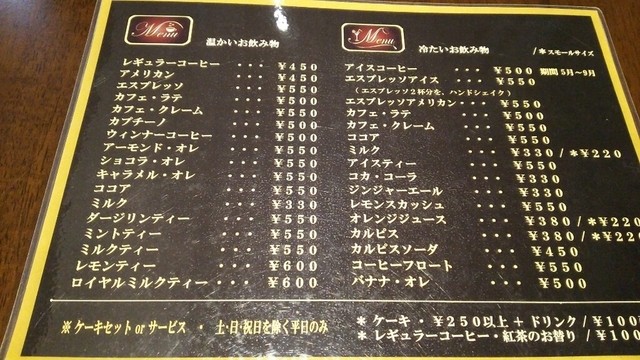 Menu
温かいお飲み物
レギュラーコーヒー ・・・ ¥450
アメリカン ・・・ ¥450
エスプレッソ ・・・ ¥550
カフェ・ラテ ・・・ ¥500
カフェ・クレーム ・・・ ¥550
カプチーノ ・・・ ¥500
ウィンナーコーヒー ・・・ ¥500
アーモンド・オレ ・・・ ¥550
ショコラ・オレ ・・・ ¥550
キャラメル・オレ ・・・ ¥550
ココア ・・・ ¥550
ミルク ・・・ ¥330
ダージリンティー ・・・ ¥550
ミントティー ・・・ ¥550
ミルクティー ・・・ ¥550
レモンティー ・・・ ¥600
ロイヤルミルクティー ・・・ ¥600
Menu
冷たいお飲み物 /*スモールサイズ
アイスコーヒー ・・・ ¥500 期間 5月~9月
エスプレッソアイス ・・・ ¥550
(エスプレッソ2杯分を、ハンドシェイク)
エスプレッソアメリカン ・・・ ¥550
カフェ・ラテ ・・・ ¥500
カフェ・クレーム ・・・ ¥550
ココア ・・・ ¥550
ミルク ・・・ ¥330 /*¥220
アイスティー ・・・ ¥550
コカ・コーラ ・・・ ¥330
ジンジャーエール ・・・ ¥330
レモンスカッシュ ・・・ ¥550
オレンジジュース ・・・ ¥380 /*¥220
カルピス ・・・ ¥380 /*¥220
カルピスソーダ ・・・ ¥450
コーヒーフロート ・・・ ¥550
バナナ・オレ ・・・ ¥550
※ケーキセット or サービス ・ 土・日・祝日を除く平日のみ
*ケーキ・¥250以上+ドリンク/¥100
*レギュラーコーヒー・紅茶のお替り/¥100